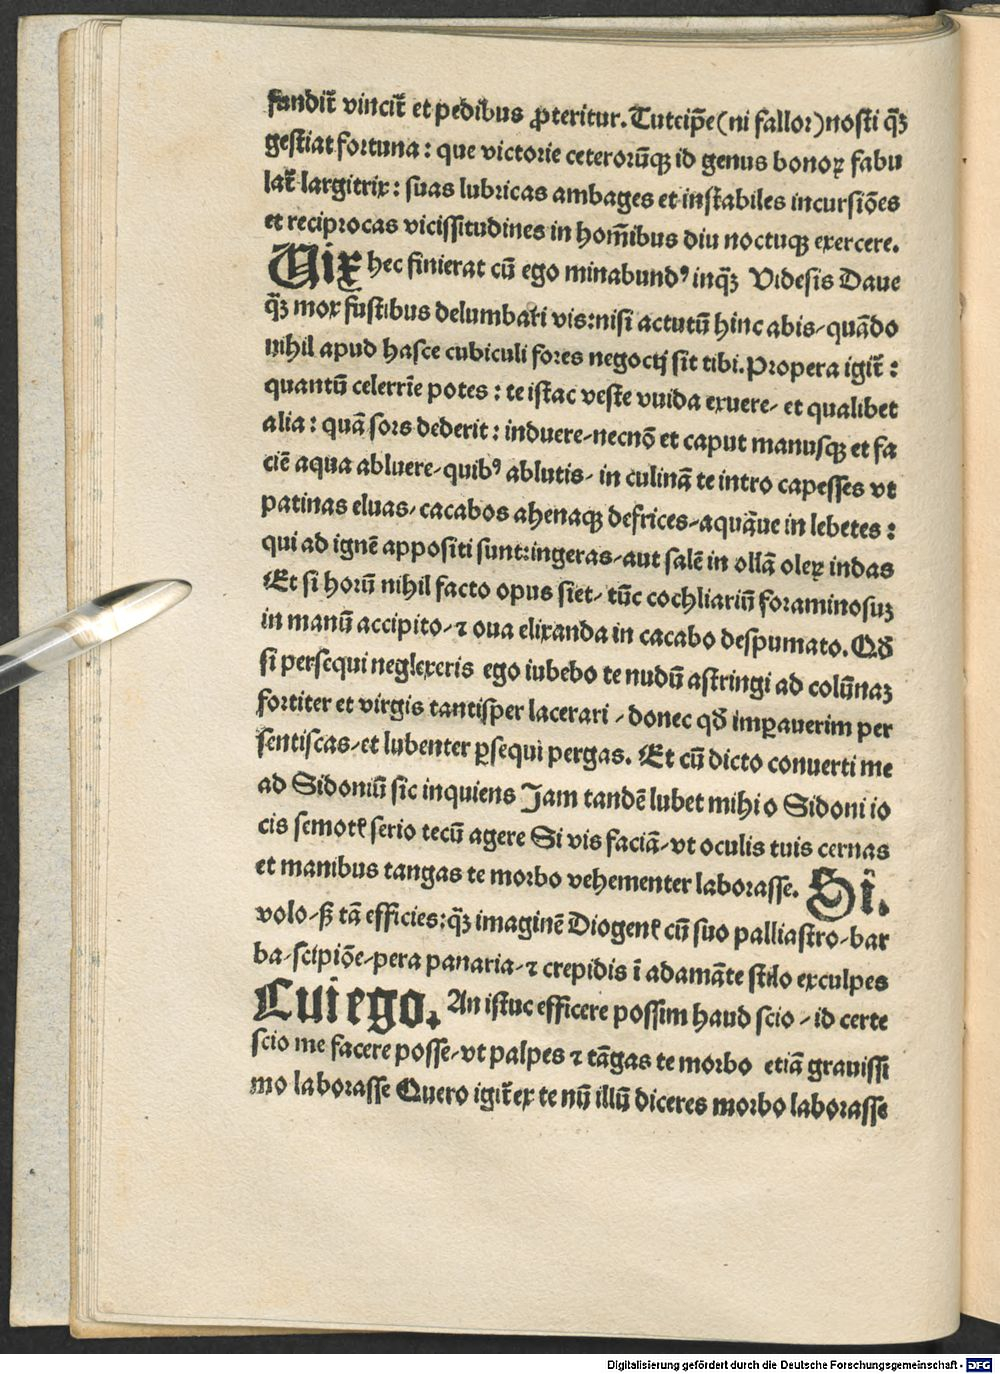 fundit᷑ vincit᷑ et pedibus ꝓteritur. Tuteip̄e (ni fallor) nosti q̄ꝫ
gestiat fortuna: que victorie ceterorūqꝫ id genus bonoꝝ fabu
lat᷑ largitrix: suas lubricas ambages et instabiles incursiões
et reciprocas vicissitudines in hoīm̄ibus diu noctuqꝫ exercere.
Uix hec finierat cū ego minabundꝰ inq̄ꝫ Videsis Daue
q̄ꝫ mox fustibus delumbari vis: nisi actutū hinc abis/ quādo
nihil apud hasce cubiculi fores negocij sit tibi. Propera igit᷑:
quantū celerrīe potes: te istac veste vuida exuere/ et qualibet
alia: quā sors dederit: induere/ necnō et caput manusqꝫ et fa
ciē aqua abluere/ quibꝰ ablutis/ in culinā te intro capesses vt
patinas eluas/ cacabos ahenaqꝫ defrices/ aquāue in lebetes:
qui ad ignē appositi sunt: ingeras/ aut salē in ollā oleꝝ indas
Et si horū nihil facto opus siet/ tūc cochliariū foraminosuꝫ
in manū accipito/ ⁊ oua elixanda in cacabo despumato. Qđ
si persequi neglexeris ego iubebo te nudū astringi ad colūnaꝫ
fortiter et virgis tantisper lacerari / donec qđ imꝑauerim per
sentiscas/ et lubenter ꝑsequi pergas. Et cū dicto conuerti me
ad Sidoniū sic inquiens Jam tandē lubet mihi o Sidoni io
cis semotꝭ serio tecū agere Si vis faciā/ vt oculis tuis cernas
et manibus tangas te morbo vehementer laborasse. Sī.
volo/ ß tā efficies: q̄ꝫ imaginē Diogenꝭ cū suo palliastro/ bar
ba/ scipiōe/ pera panaria/ ⁊ crepidis ī adamāte stilo exculpes
Cui ego. An istuc efficere possim haud scio / id certe
scio me facere posse/ vt palpes ⁊ tāgas te morbo etiā grauissi
mo laborasse Quero igit᷑ ex te nū illū diceres morbo laborasse
Digitalisierung gefördert durch die Deutsche Forschungsgemeinschaft - DFG